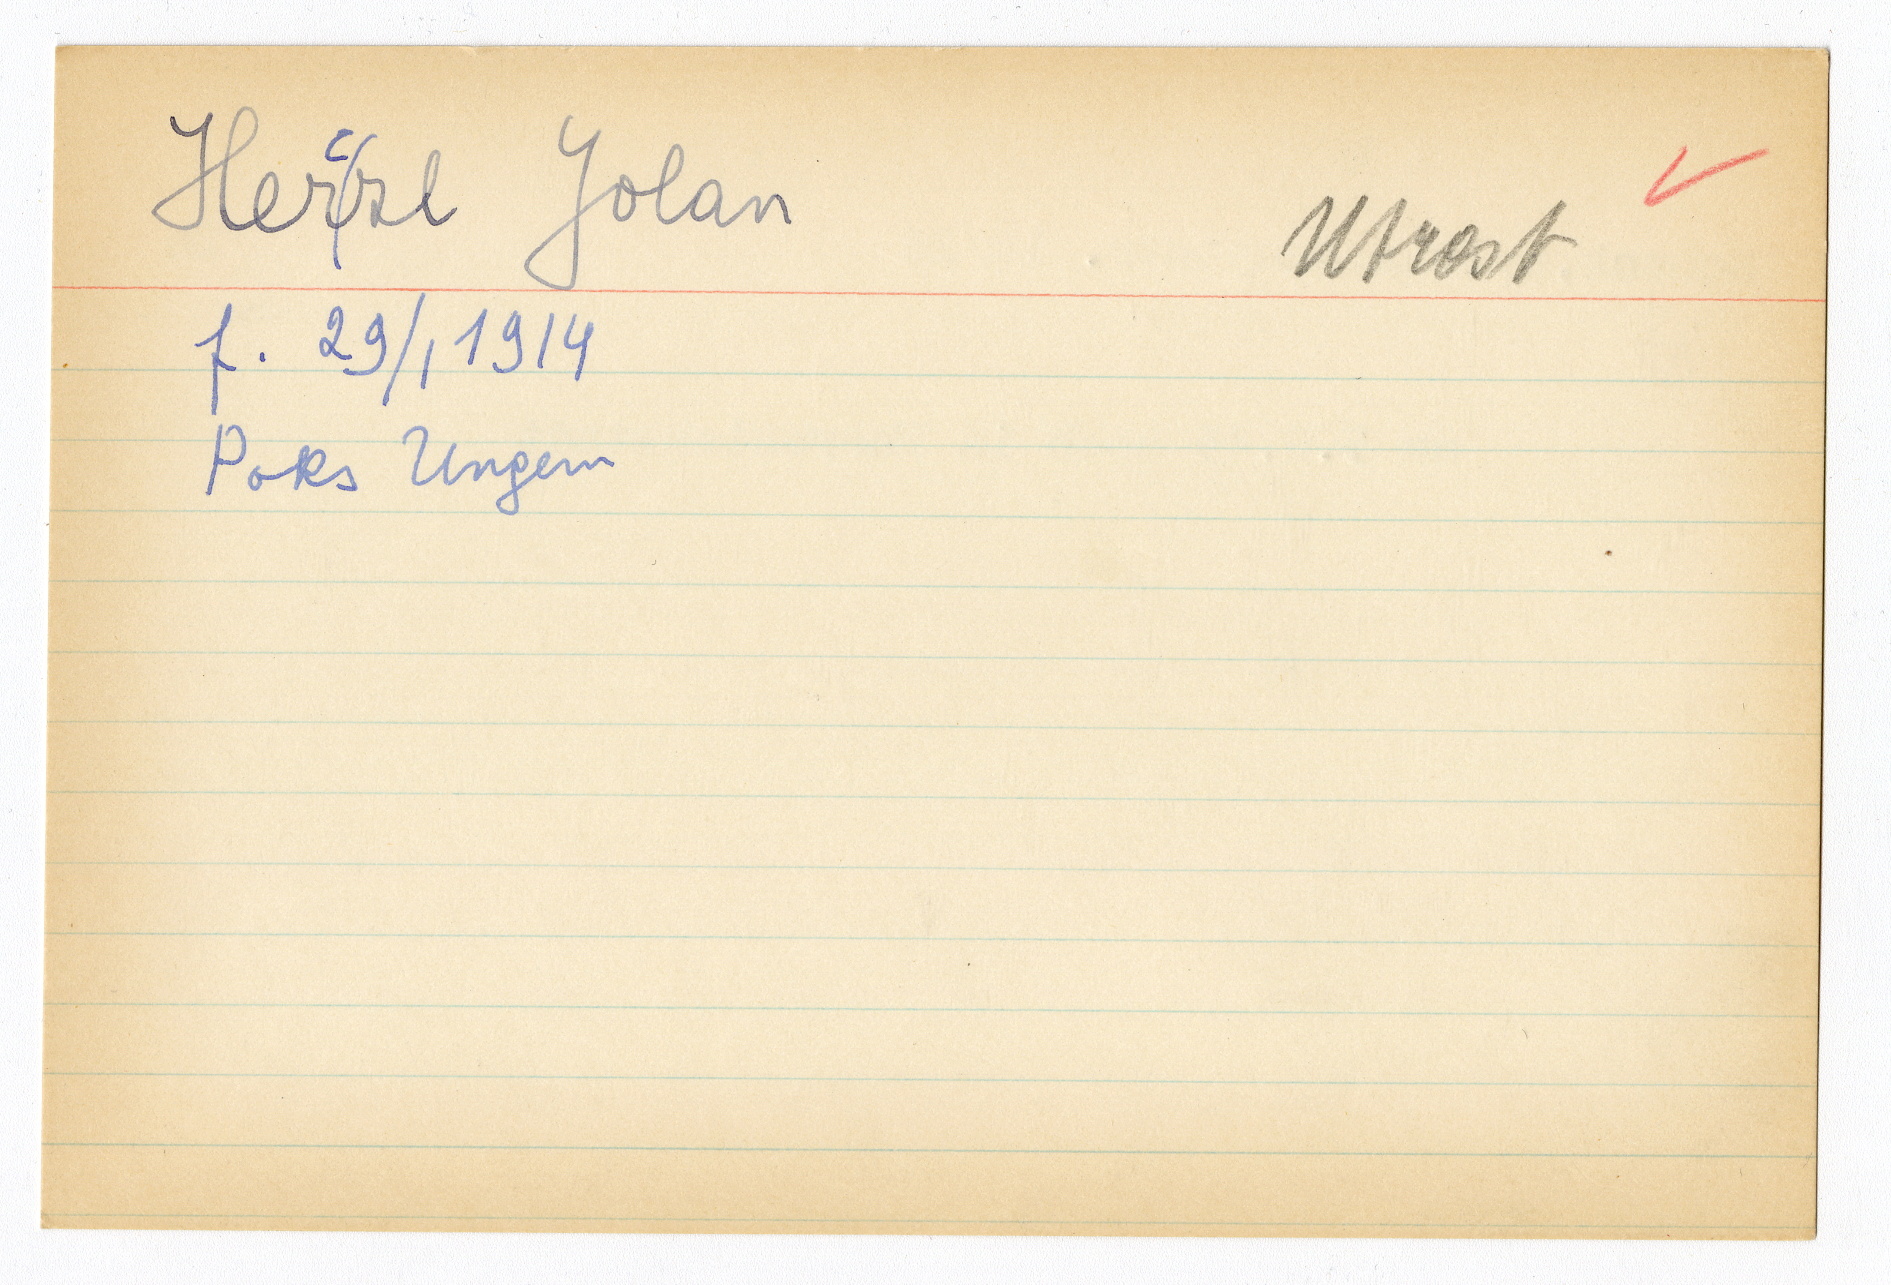 Herczl Jolan
Utrest
f. 29/1 1914
Poks Ungern